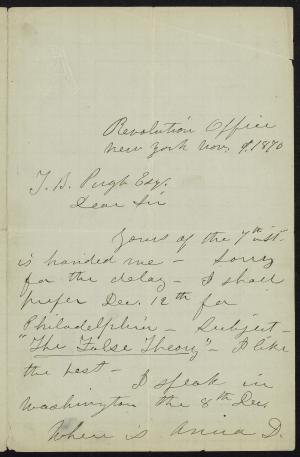 Revolution Office
New York Nov. 9. 1870
T. B. Pugh Esq.
Dear Sir
Yours of the 7th inst.
is handed me – Sorry
for the delay – I shall
prefer Dec. 12th for
Philadelphia – Subject –
"The False Theory" – I like
the best –
I speak in
Washington the 8th Dec.
Where is Anna D.